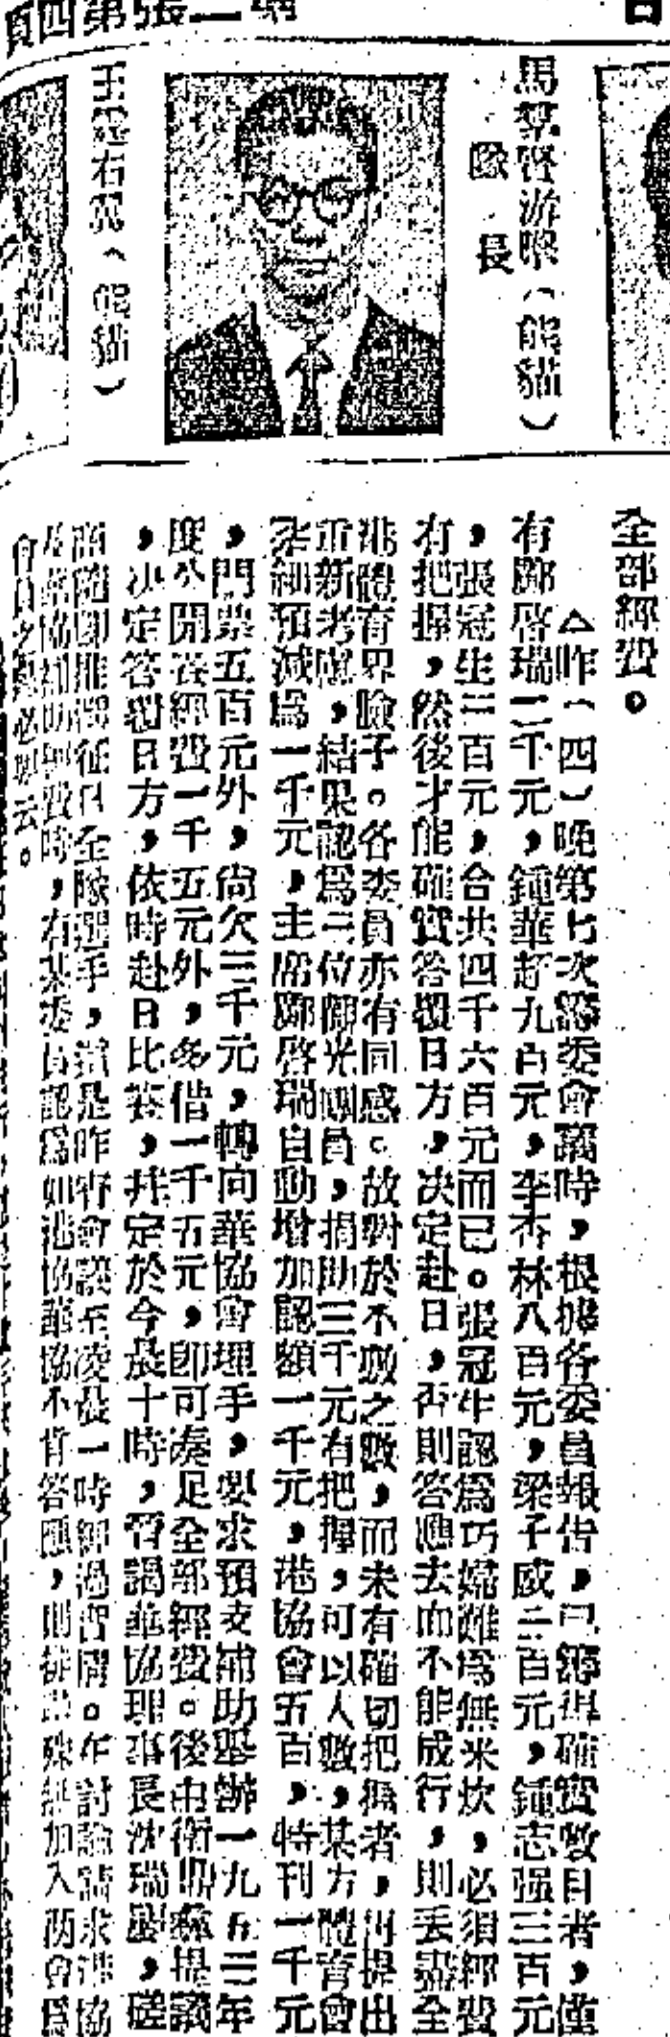 張第四頁
馬黎賢游擊（熊貓）
隊長
王靈右翼（熊貓）
全部經費。
△昨（四）晚第七次籌委會議時，根據各委員報告，已籌得確實數目者，僅
有鄺啓瑞二千元，鍾華超九百元，李杏林八百元，梁子威二百元，鍾志强三百元
，張冠生三百元，合共四千六百元而已。張冠生認爲巧婦難爲無米炊，必須經費
有把握，然後才能確實答覆日方，决定赴日，否則答應去而不能成行，則丢盡全
港體育界臉子。各委員亦有同感。故對於不敷之數，而未有確切把握者，再提出
重新考慮，結果認爲二位觀光團員，捐助三千元有把握，可以入數，某方體育會
預減爲一千元，主席鄺啓瑞自動增加認額一千元，港協會五百，特刊一千元
，門票五百元外，尚欠三千元，轉向華協會埋手，要求預支補助舉辦一九五三年
度公開賽經費一千五元外，多借一千五元，即可湊足全部經費。後由衛鼎彝提議
，决定答覆日方，依時赴日比賽，并定於今晨十時，晉謁華協理事長沈瑞慶，磋
商隨即推選征日全隊選手，于是昨宵會議至凌晨一時經過皆閒。在討論請求港協
及華協補助經費時，有某委員認爲如港協華協不肯答應，則排乒殊無加入兩會爲
會員之必要云。